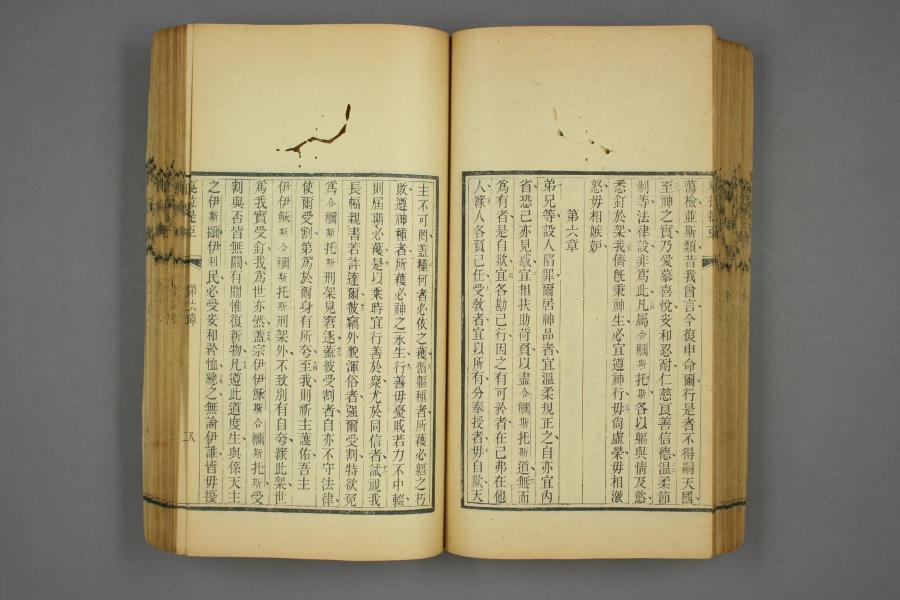 蕩檢並斯類昔我曾言今復申命爾行是者不得嗣天國
至神之實乃愛慕喜悅安和忍耐仁慈良善信德温柔節
制等法律設非爲此凡屬合䄎斯托斯各以軀與情及慾
悉釘於架我儕旣秉神生必宜遵神行毋尙虛榮毋相激
怒毋相嫉妒
第六章
弟兄等設人陷罪爾居神品者宜溫柔規正之自亦宜內
省恐己亦見惑宜相扶助荷負以盡合䄎斯托斯道無而
爲有者是自欺宜各勘己行因之有可於者在己弗在他
人緣人各負己任受敎者宜以所有分奉授者毋自欺天
主不可罔蓋種何者必依之穫循軀種者所穫必軀之朽
敗遵神種者所穫必神之永生行善毋憂戝若力不中輟
則屆期必穫是以乘時宜行善於衆尤於同信者試視我
長幅親書若許達爾彼竊外貌渾俗者强爾受割特欲免
爲合䄎斯托斯刑架見窘逐蓋彼受割者自亦不守法律
使爾受割第爲於爾身有所夸至我則祈主護佑吾主
伊伊穌斯合䄎斯托斯刑架外不致別有自夸緣此架世
爲我實受釘我爲世亦然蓋宗伊伊穌斯合䄎斯托斯受
割與否皆無關有關惟復新物凡遵此道度生與係天主
之伊斯攝伊利民必受安和矜恤總之無論伊誰皆毋擾
第六章